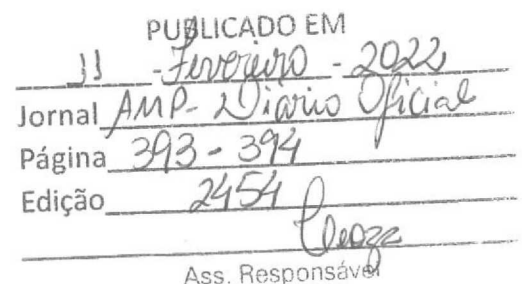 PUBLICADO EM
11 - Fevereiro - 2022
Jornal AMP- Diário Oficial
Página 393 - 394
Edição 2454
Ass. Responsável